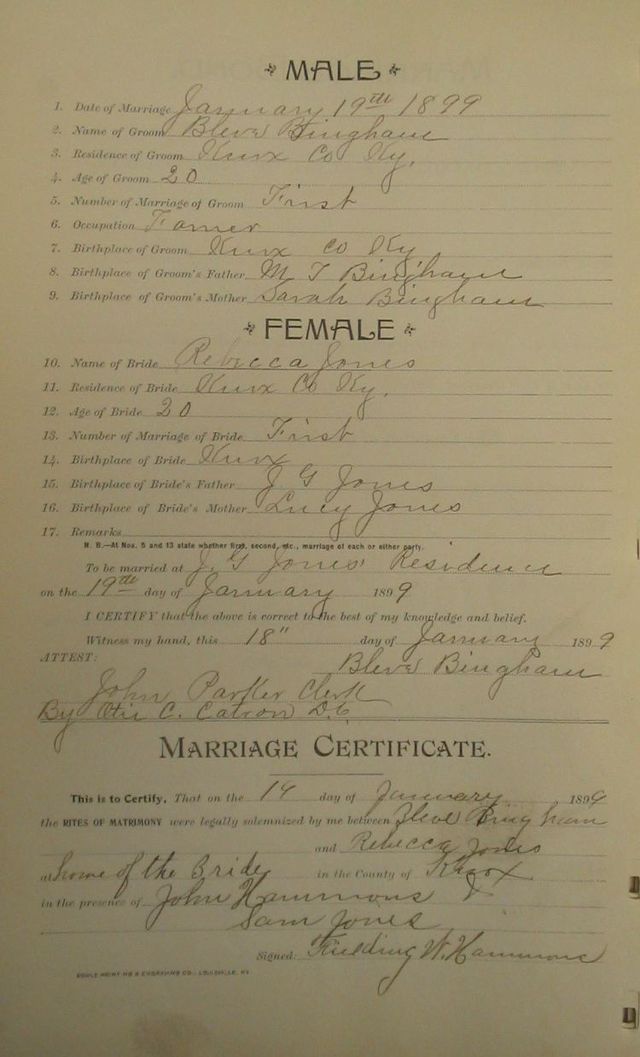 MALE
1. Date of Marriage January 19th 1899
2. Name of Groom Bleve Bingham
3. Residence of Groom Knox Co Ky.
4. Age of Groom 20
5. Number of Marriage of Groom First
6. Occupation Famer
7. Birthplace of Groom Knox Co Ky
8. Birthplace of Groom's Father M T Bingham
9. Birthplace of Groom's Mother Sarah Bingham
FEMALE
10. Name of Bride Rebecca Jones
11. Residence of Bride Knox Co Ky.
12. Age of Bride 20
13. Number of Marriage of Bride First
14. Birthplace of Bride Knox
15. Birthplace of Bride's Father J G Jones
16. Birthplace of Bride's Mother Lucy Jones
17. Remarks
N. B.—At Nos. 5 and 13 state whether first, second, etc., marriage of each or either party.
To be married at J. G Jones' Residence
on the 19th day of January 1899
I CERTIFY that the above is correct to the best of my knowledge and belief.
Witness my hand, this 18" day of January 1899
ATTEST: Bleve Bingham
John Parker Clerk
By Otis C. Catron D.C.
MARRIAGE CERTIFICATE.
This is to Certify, That on the 19 day of January 1899
the RITES OF MATRIMONY were legally solemnized by me between Bleve Bingham
and Rebecca Jones
at home of the Bride in the County of Knox
in the presence of John Hammons &
Sam Jones
Signed: Fielding W. Hammons
PRINTING & ENGRAVING CO., LOUISVILLE, KY.